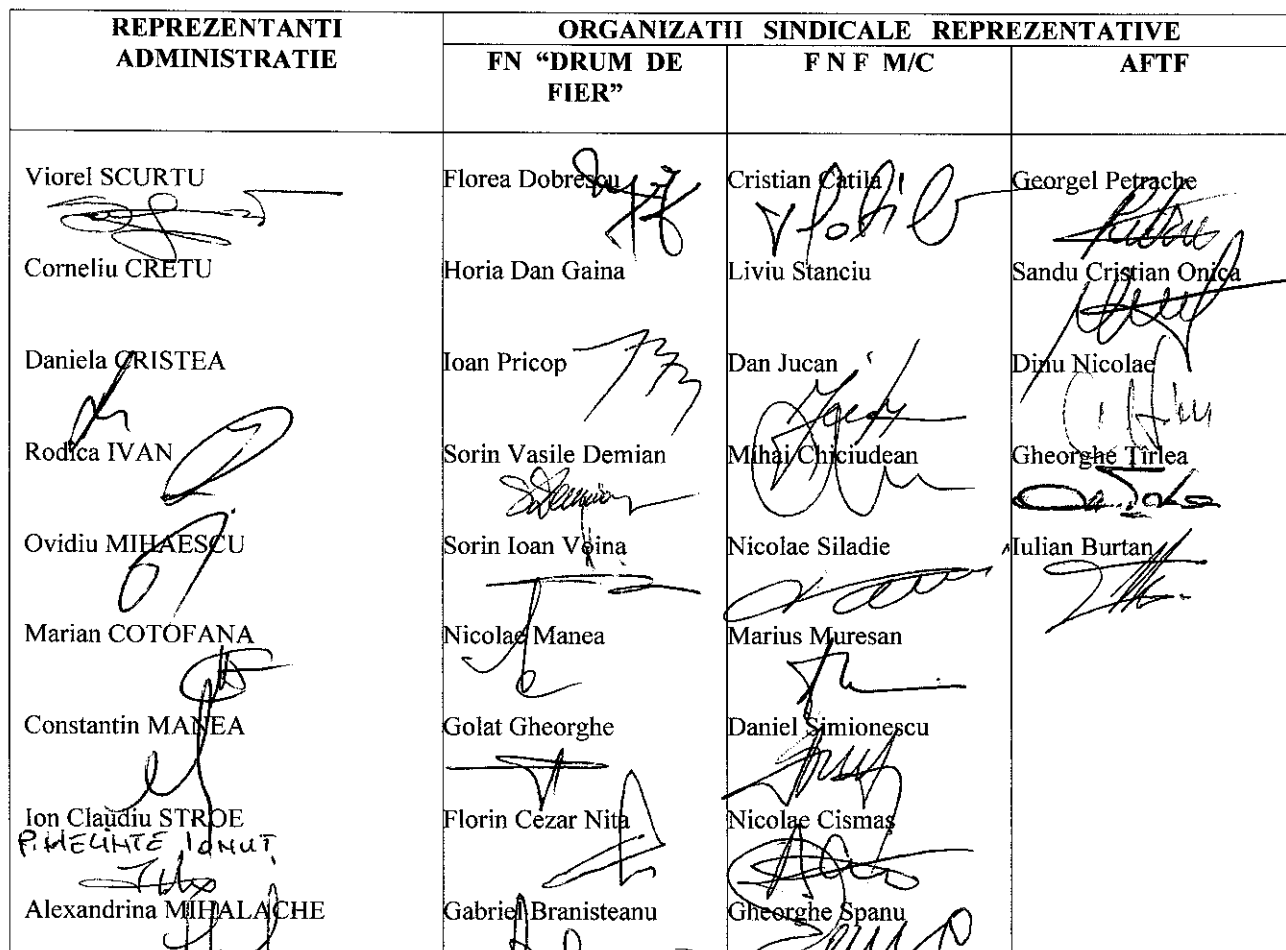 REPREZENTANTI ADMINISTRATIE
ORGANIZATII SINDICALE REPREZENTATIVE
FN “DRUM DE FIER”
F N F M/C
AFTF
Viorel SCURTU
Florea Dobrescu
Cristian Catila
Georgel Petrache
Corneliu CRETU
Horia Dan Gaina
Liviu Stanciu
Sandu Cristian Onica
Daniela CRISTEA
Ioan Pricop
Dan Jucan
Dinu Nicolae
Rodica IVAN
Sorin Vasile Demian
Mihai Chiciudean
Gheorghe Tîrlea
Ovidiu MIHAESCU
Sorin Ioan Voina
Nicolae Siladie
Iulian Burtan
Marian COTOFANA
Nicolae Manea
Marius Muresan
Constantin MANEA
Golat Gheorghe
Daniel Simionescu
Ion Claudiu STROE
Florin Cezar Nita
Nicolae Cismas
IONUT
Alexandrina MIHALACHE
Gabriel Branisteanu
Gheorghe Spanu